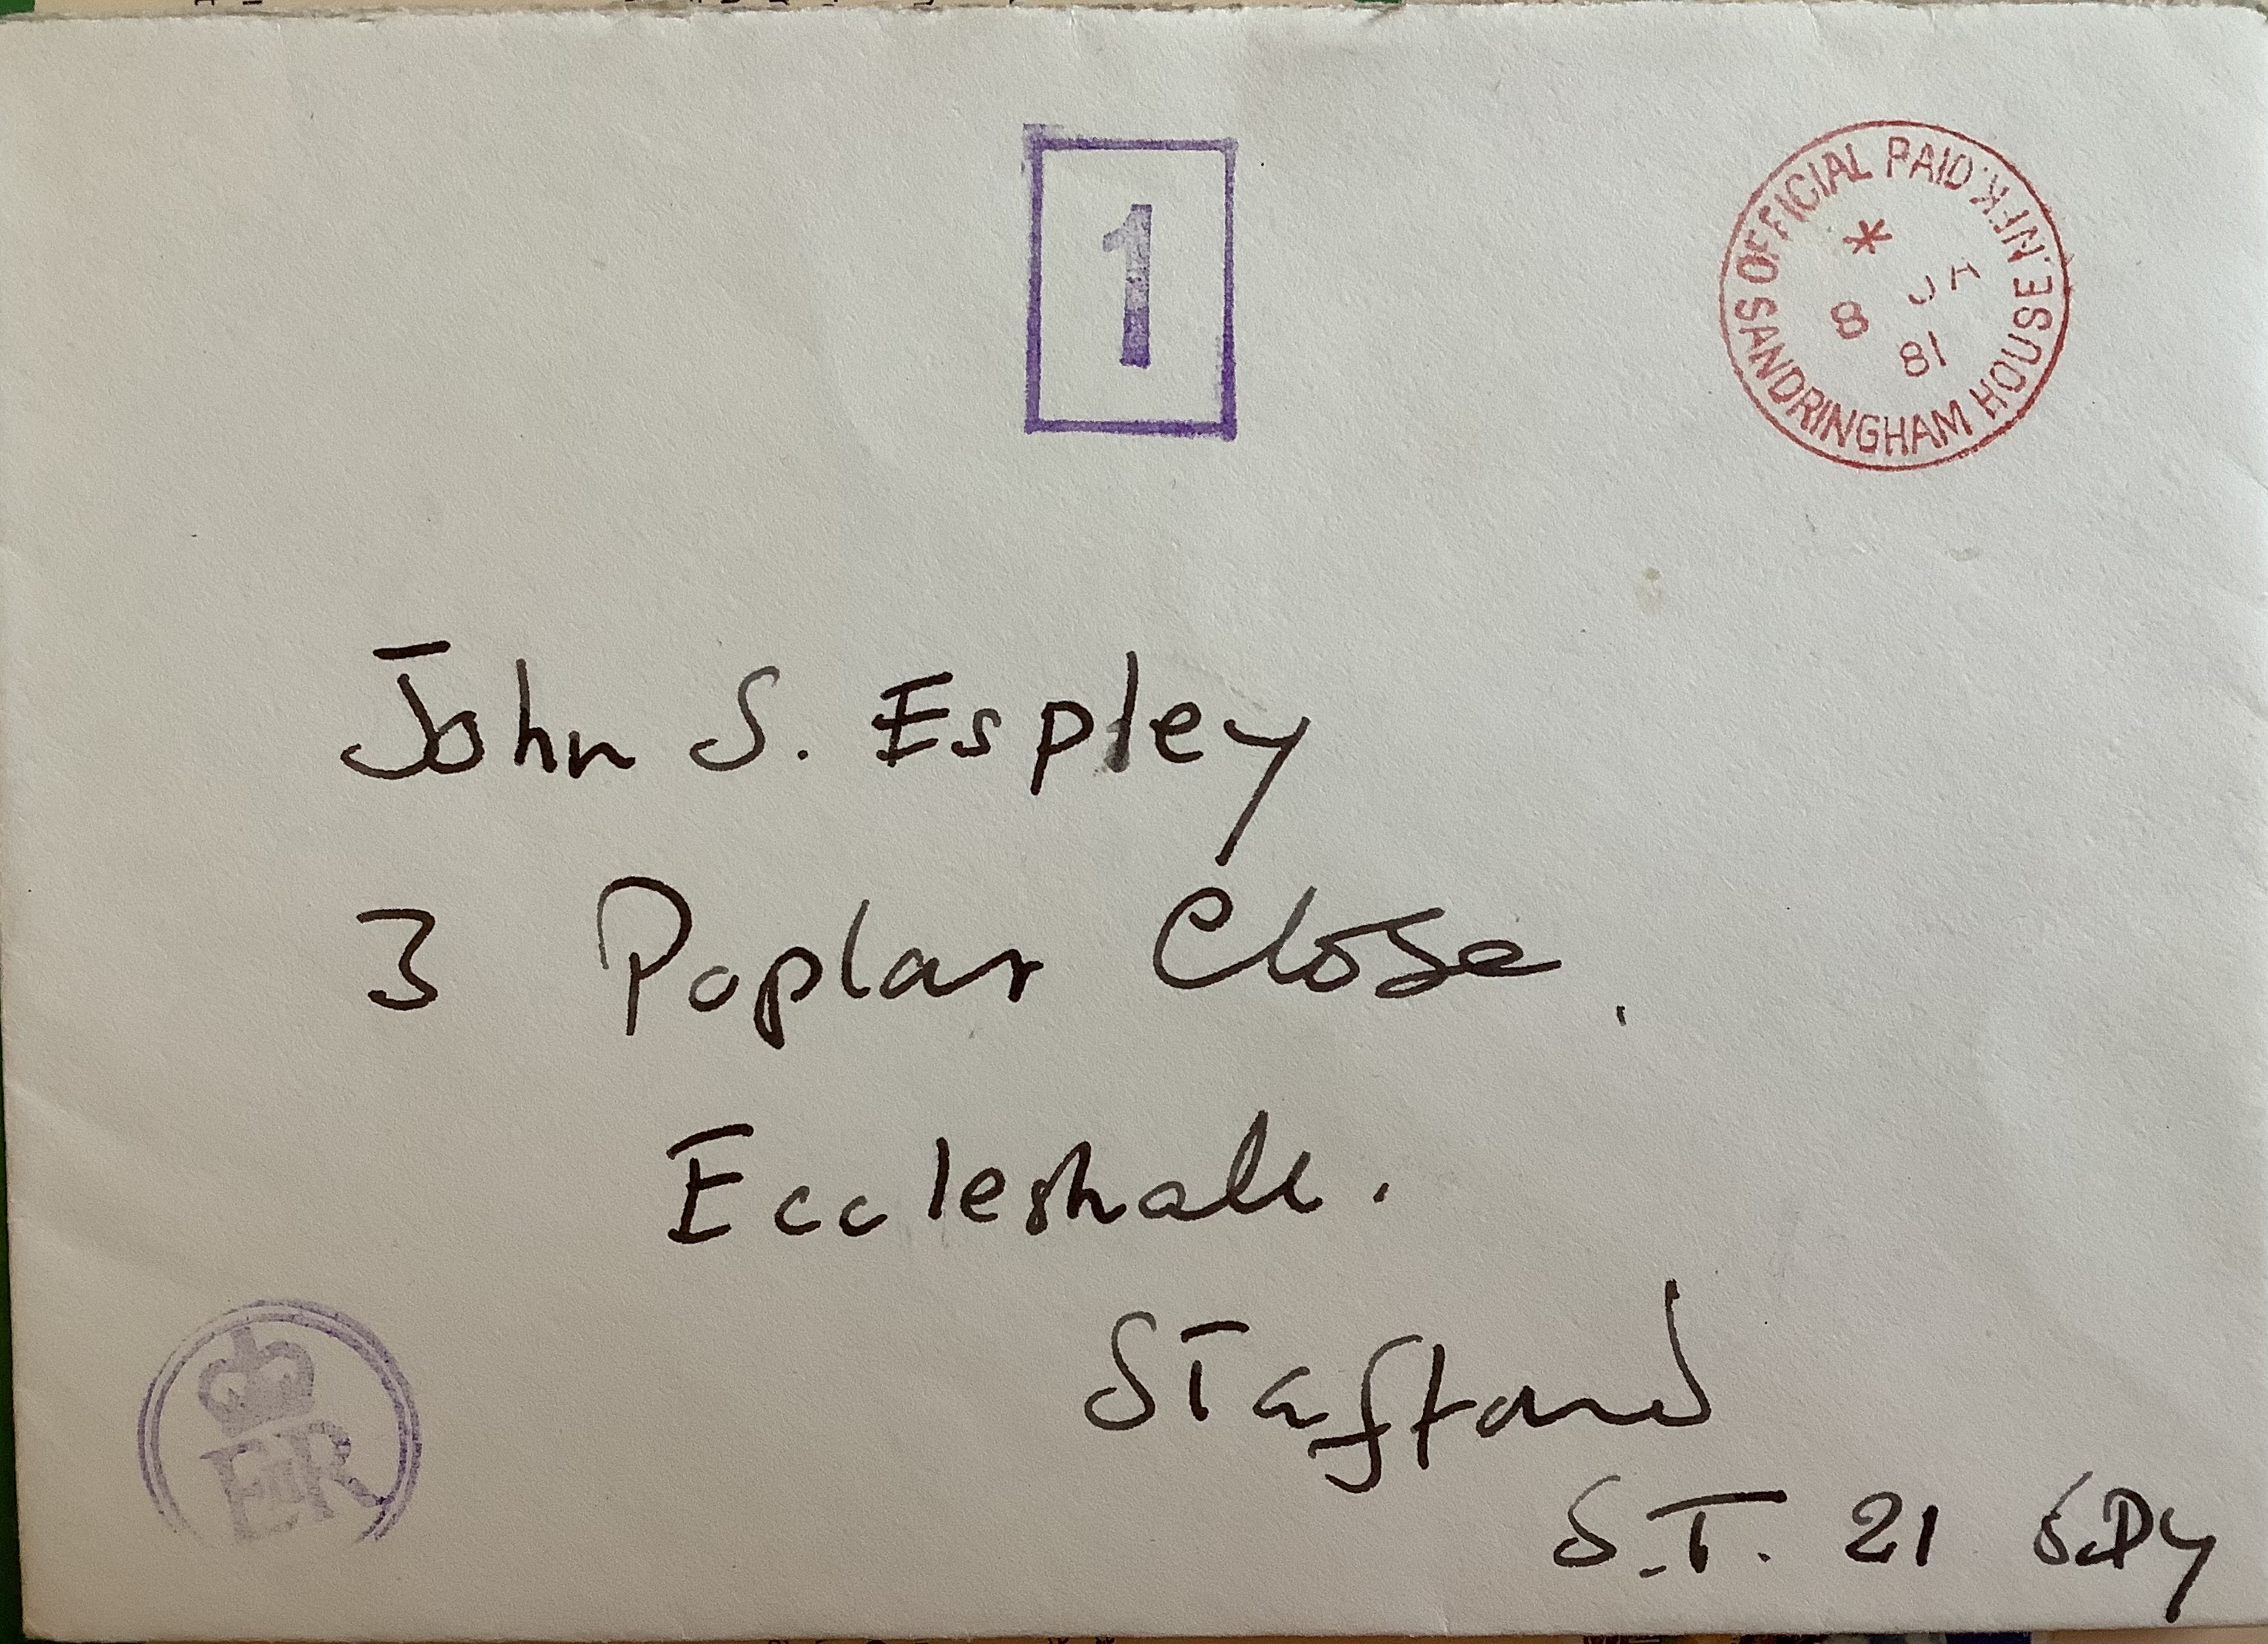 1
OFFICIAL PAID
SANDRINGHAM HOUSE.NFK.
*
8 JA
81
John S. Espley
3 Poplar Close.
Eccleshall.
Stafford
S.T. 21 6DY
EIIR